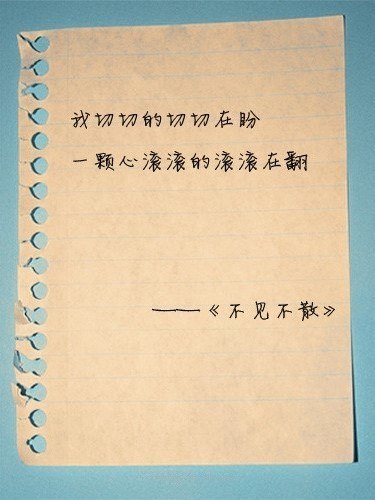 我切切的切切在盼
一颗心滚滚的滚滚在翻
——《不见不散》